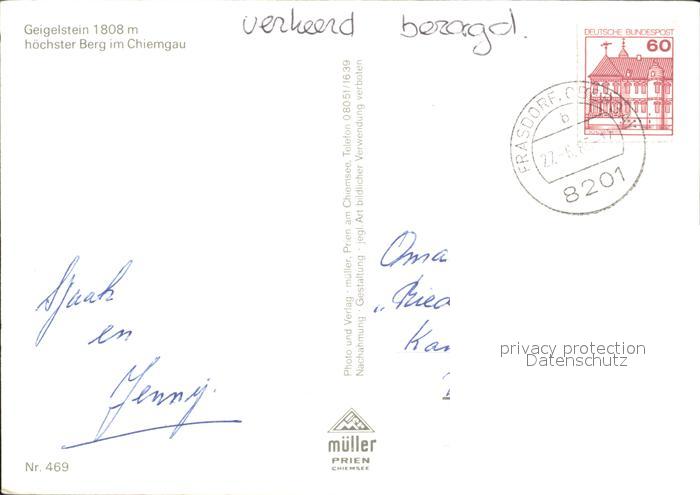 Geigelstein 1808 m
höchster Berg im Chiemgau
verkeerd bezorgd.
DEUTSCHE BUNDESPOST
60
FRASDORF, OB
b
27.-6.8
8201
Photo und Verlag · müller, Prien am Chiemsee, Telefon 0 80 51/16 39
Nachahmung · Gestaltung · jegl. Art bildlicher Verwendung verboten
Sjaak
en
Jenny.
Oma
Kan
privacy protection
Datenschutz
müller
PRIEN
CHIEMSEE
Nr. 469